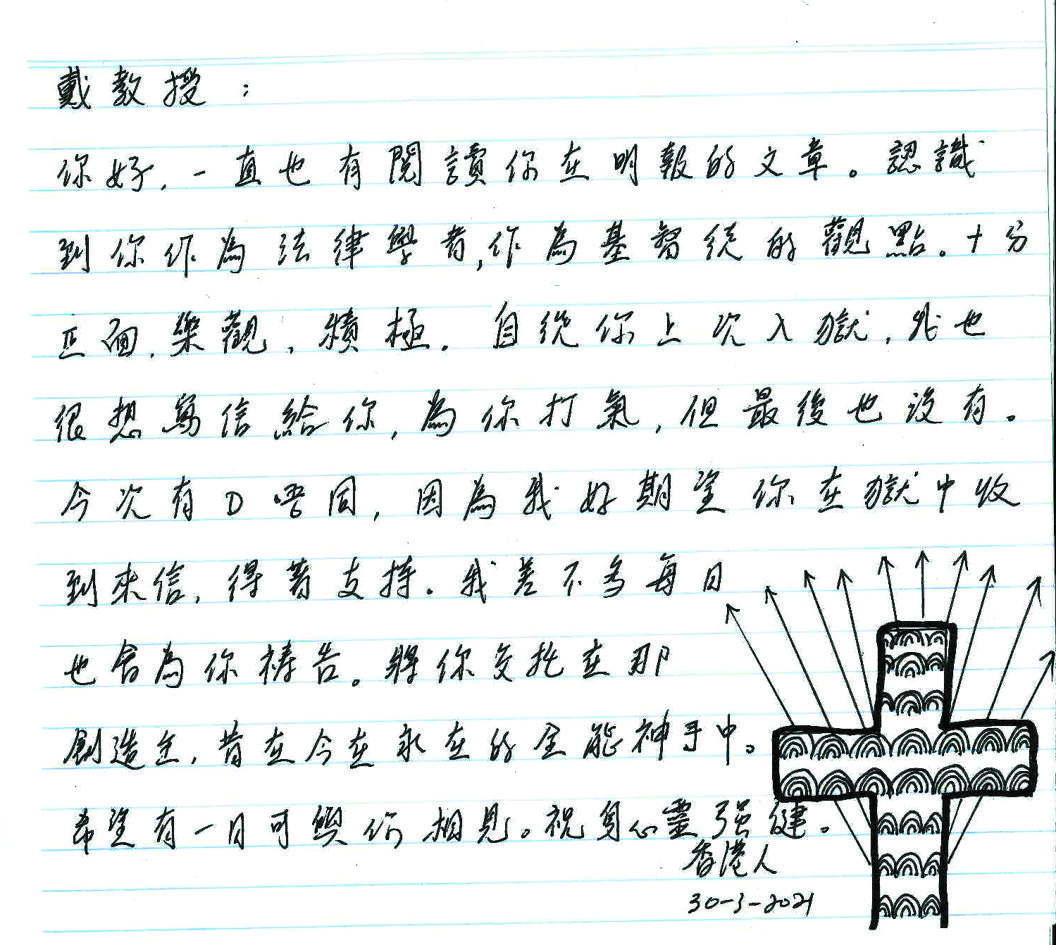 戴教授：
你好，一直也有閱讀你在明報的文章。認識
到你作為法律學者，作為基督徒的觀點。十分
正面、樂觀、積極。自從你上次入獄，我也
很想寫信給你，為你打氣，但最後也沒有。
今次有D唔同，因為我好期望你在獄中收
到來信，得著支持。我差不多每日
也會為你禱告。將你交托在那
創造主，昔在今在永在的全能神手中。
希望有一日可與你相見。祝身心靈强健。
香港人
30-3-2021